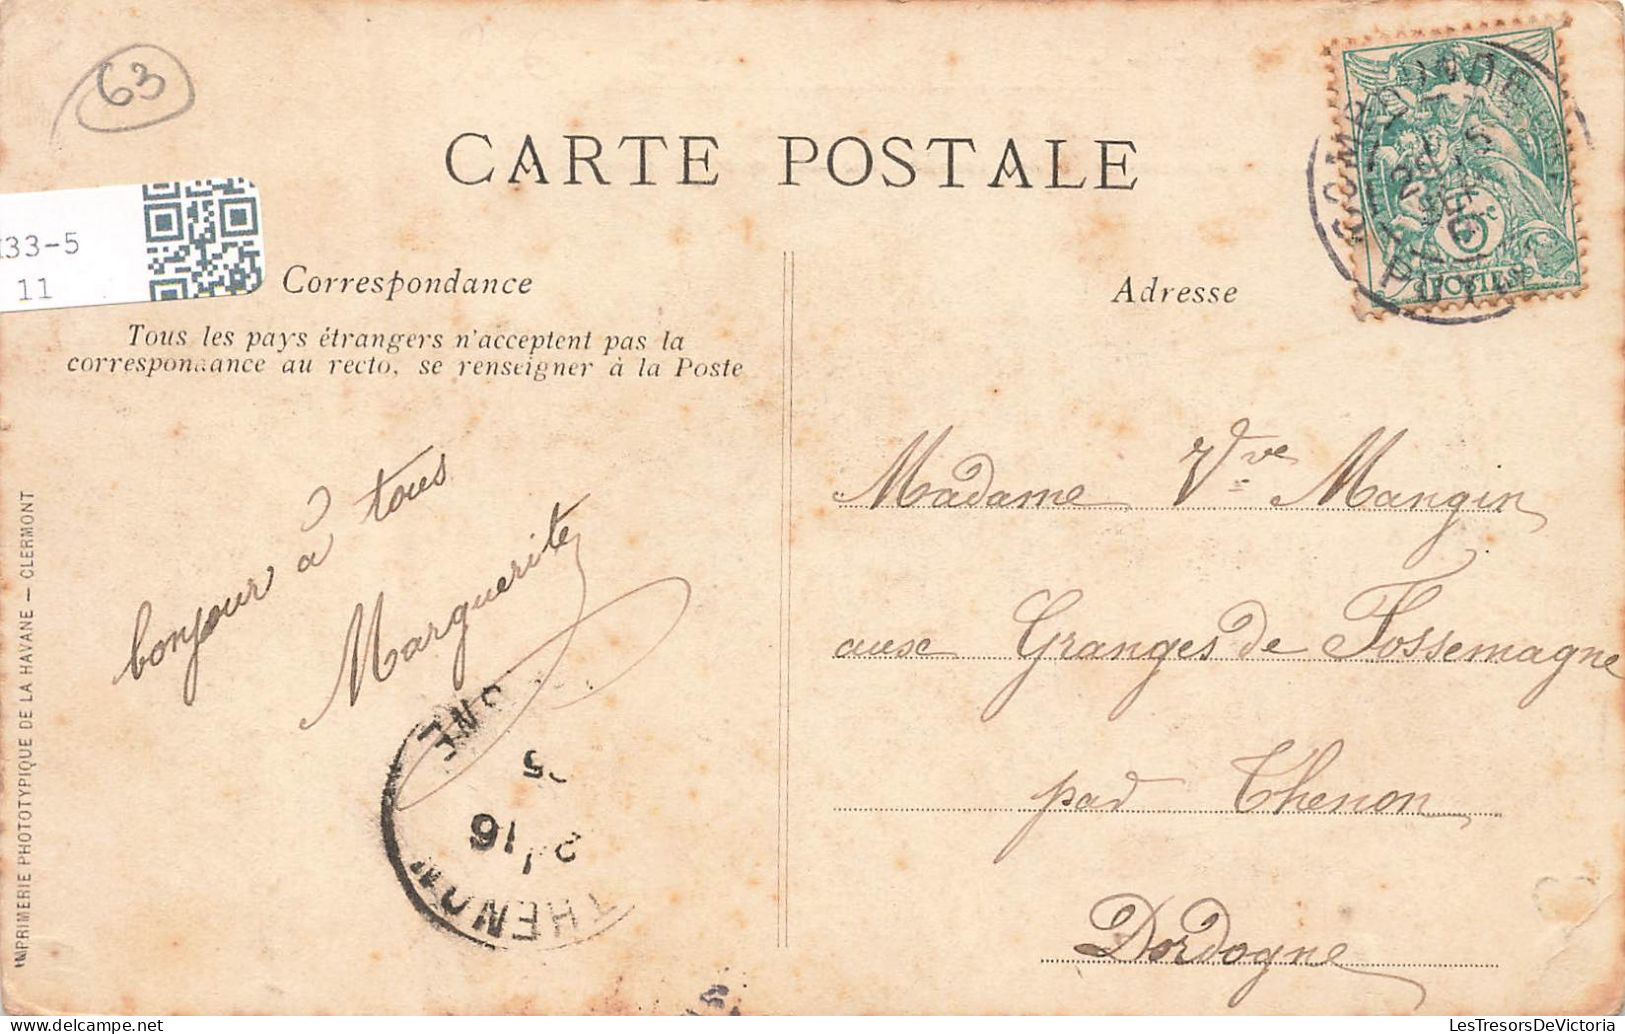 63
CARTE POSTALE
33-5
11
Correspondance
Tous les pays étrangers n'acceptent pas la
correspondance au recto, se renseigner à la Poste
Adresse
5c
POSTES
bonjour à tous
Marguerite
Madame Vve Mangin
aux Granges de Fossemagne
par Thenon
Dordogne
THENON
16
IMPRIMERIE PHOTOTYPIQUE DE LA HAVANE — CLERMONT
LesTresorsDeVictoria